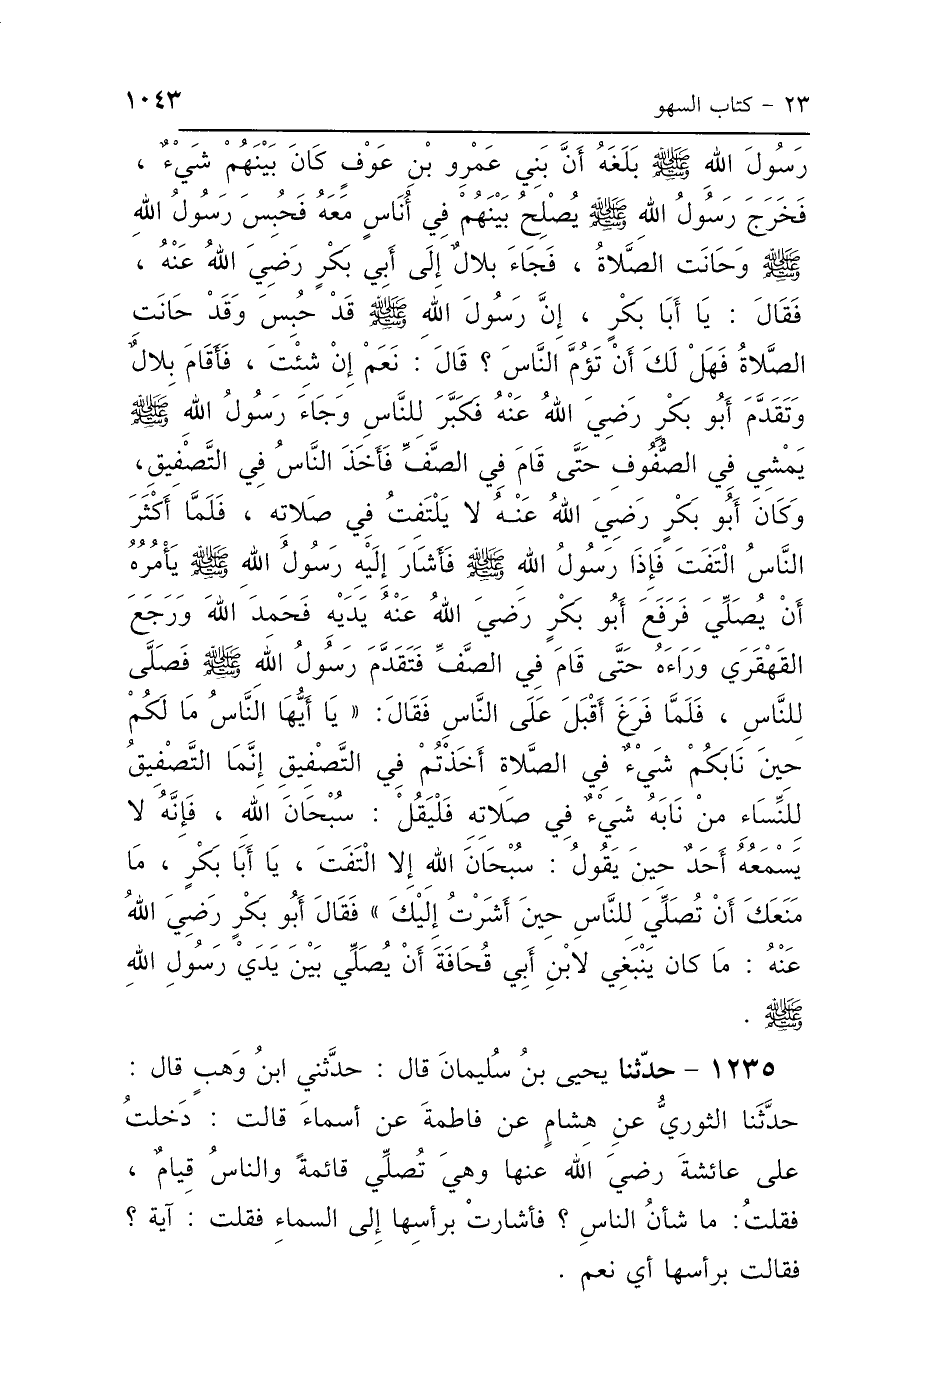 ٢٣ - كتاب السهو ١٠٤٣
رَسُولَ اللهِ ﷺ بَلَغَهُ أَنَّ بَنِي عَمْرِو بْنِ عَوْفٍ كَانَ بَيْنَهُمْ شَيْءٌ ،
فَخَرَجَ رَسُولُ اللهِ ﷺ يُصْلِحُ بَيْنَهُمْ فِي أُنَاسٍ مَعَهُ فَحُبِسَ رَسُولُ اللهِ
ﷺ وَحَانَت الصَّلاةُ ، فَجَاءَ بلالٌ إِلَى أَبِي بَكْرٍ رَضِيَ اللهُ عَنْهُ ،
فَقَالَ : يَا أَبَا بَكْرٍ ، إِنَّ رَسُولَ اللهِ ﷺ قَدْ حُبِسَ وَقَدْ حَانَت
الصَّلاةُ فَهَلْ لَكَ أَنْ تَؤُمَّ النَّاسَ ؟ قَالَ : نَعَمْ إِنْ شئْتَ ، فَأَقَامَ بِلالٌ
وَتَقَدَّمَ أَبُو بَكْرٍ رَضِيَ اللهُ عَنْهُ فَكَبَّرَ لِلنَّاسِ وَجَاءَ رَسُولُ اللهِ ﷺ
يَمْشِي فِي الصُّفُوفِ حَتَّى قَامَ فِي الصَّفِّ فَأَخَذَ النَّاسُ فِي التَّصْفِيقِ،
وَكَانَ أَبُو بَكْرٍ رَضِيَ اللهُ عَنْهُ لا يَلْتَفِتُ فِي صَلاتِهِ ، فَلَمَّا أَكْثَرَ
النَّاسُ الْتَفَتَ فَإِذَا رَسُولُ اللهِ ﷺ فَأَشَارَ إِلَيْهِ رَسُولُ اللهِ ﷺ يَأْمُرُهُ
أَنْ يُصَلِّيَ فَرَفَعَ أَبُو بَكْرٍ رَضِيَ اللهُ عَنْهُ يَدَيْهِ فَحَمِدَ اللهَ وَرَجَعَ
القَهْقَرَي وَرَاءَهُ حَتَّى قَامَ فِي الصَّفِّ فَتَقَدَّمَ رَسُولُ اللهِ ﷺ فَصَلَّى
لِلنَّاسِ ، فَلَمَّا فَرَغَ أَقْبَلَ عَلَى النَّاسِ فَقَالَ: « يَا أَيُّهَا النَّاسُ مَا لَكُمْ
حِينَ نَابَكُمْ شَيْءٌ فِي الصَّلاةِ أَخَذْتُمْ فِي التَّصْفِيقِ إِنَّمَا التَّصْفِيقُ
لِلنِّسَاءِ مَنْ نَابَهُ شَيْءٌ فِي صَلاتِهِ فَلْيَقُلْ : سُبْحَانَ اللهِ ، فَإِنَّهُ لا
يَسْمَعُهُ أَحَدٌ حِينَ يَقُولُ : سُبْحَانَ اللهِ إِلا الْتَفَتَ ، يَا أَبَا بَكْرٍ ، مَا
مَنَعَكَ أَنْ تُصَلِّيَ لِلنَّاسِ حِينَ أَشَرْتُ إِلَيْكَ » فَقَالَ أَبُو بَكْرٍ رَضِيَ اللهُ
عَنْهُ : مَا كان يَنْبَغِي لابْنِ أَبِي قُحَافَةَ أَنْ يُصَلِّي بَيْنَ يَدَيْ رَسُولِ اللهِ
ﷺ .
١٢٣٥ - حدّثنا يحيى بنُ سُليمانَ قال : حدَّثني ابنُ وَهبٍ قال :
حدَّثَنا الثوريُّ عن هِشامٍ عن فاطمةَ عن أسماءَ قالت : دَخلتُ
على عائشةَ رضيَ الله عنها وهيَ تُصلِّي قائمةً والناسُ قِيامٌ ،
فقلتُ: ما شأنُ الناسِ ؟ فأشارتْ برأسِها إلى السماءِ فقلت : آية ؟
فقالت برأسها أي نعم .